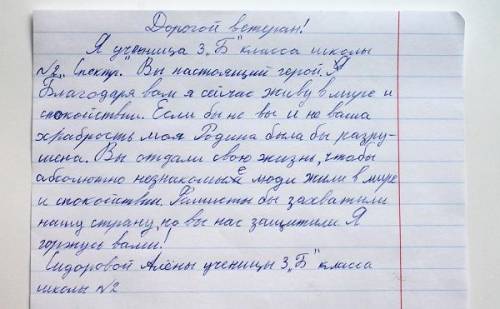 Дорогой ветеран!
Я ученица 3 „Б" класса школы
№2 „Спектр." Вы настоящий герой. Я
Благодаря вам я сейчас живу в мире и
спокойствии. Если бы не вы и не ваша
храбрость моя Родина была бы разру-
шена. Вы отдали свою жизнь, чтобы
абсолютно незнакомые люди жили в мире
и спокойствии. Фашисты бы захватили
нашу страну, но вы нас защитили. Я
горжусь вами!
Сидоровой Алёны ученицы 3 „Б" класса
школы №2